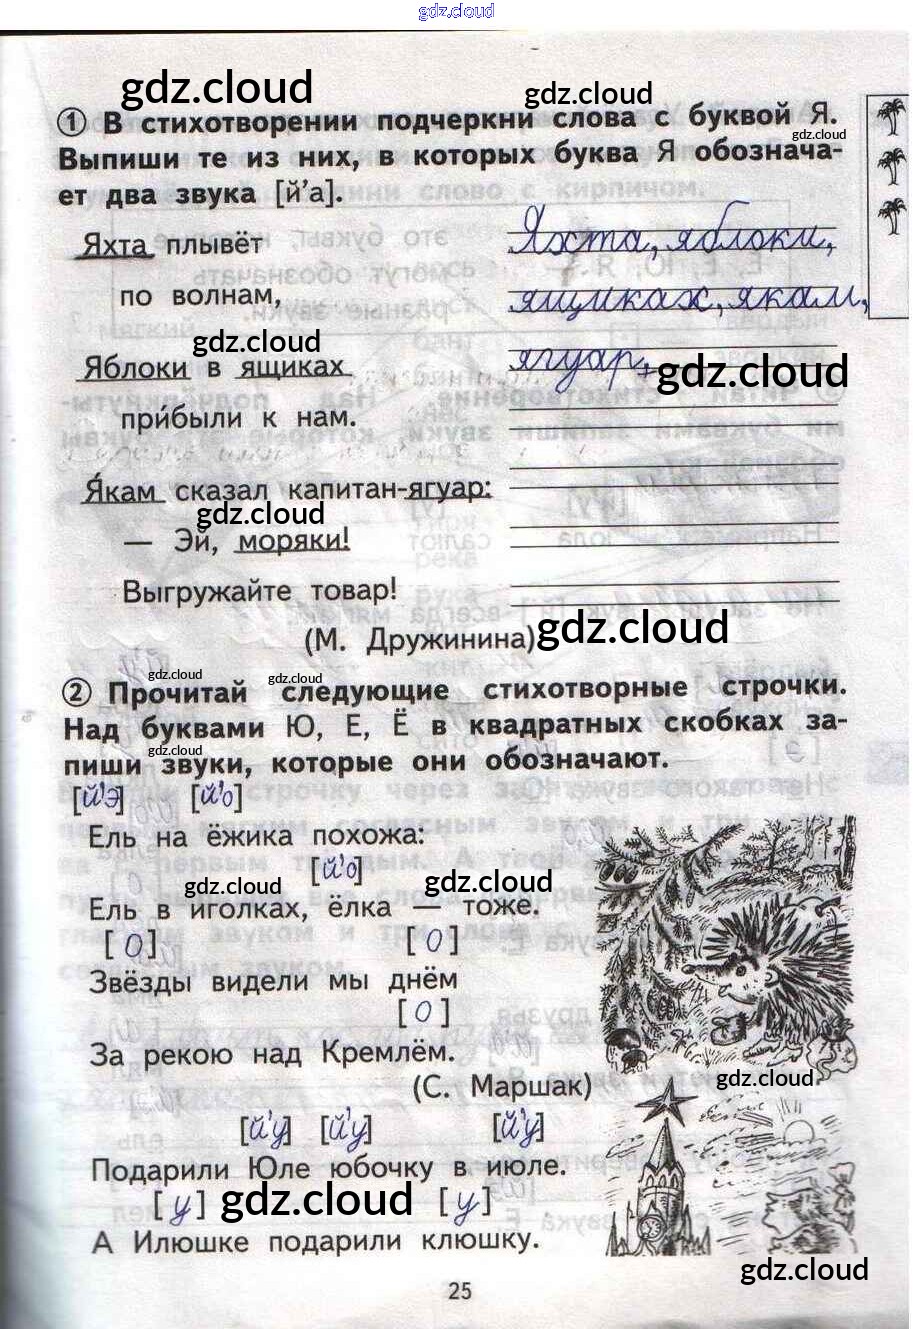 gdz.cloud
gdz.cloud
gdz.cloud
① В стихотворении подчеркни слова с буквой Я.
gdz.cloud
Выпиши те из них, в которых буква Я обознача-
ет два звука [й’а].
Яхта плывёт
Яхта, яблоки,
по волнам,
ящиках, якам,
gdz.cloud
ягуар.
Яблоки в ящиках
gdz.cloud
при́были к нам.
Я́кам сказал капитан-ягуар:
gdz.cloud
— Эй, моряки!
Выгружайте товар!
(М. Дружинина)
gdz.cloud
gdz.cloud
gdz.cloud
② Прочитай следующие стихотворные строчки.
Над буквами Ю, Е, Ё в квадратных скобках за-
gdz.cloud
пиши звуки, которые они обозначают.
[й’э] [й’о]
Ель на ёжика похожа:
[й’о]
gdz.cloud
gdz.cloud
Ель в иголках, ёлка — тоже.
[о] [о]
Звёзды видели мы днём
[о]
За рекою над Кремлём.
gdz.cloud
(С. Маршак)
[й’у] [й’у] [й’у]
Подарили Юле юбочку в июле.
[у] [у]
gdz.cloud
А Илюшке подарили клюшку.
gdz.cloud
25